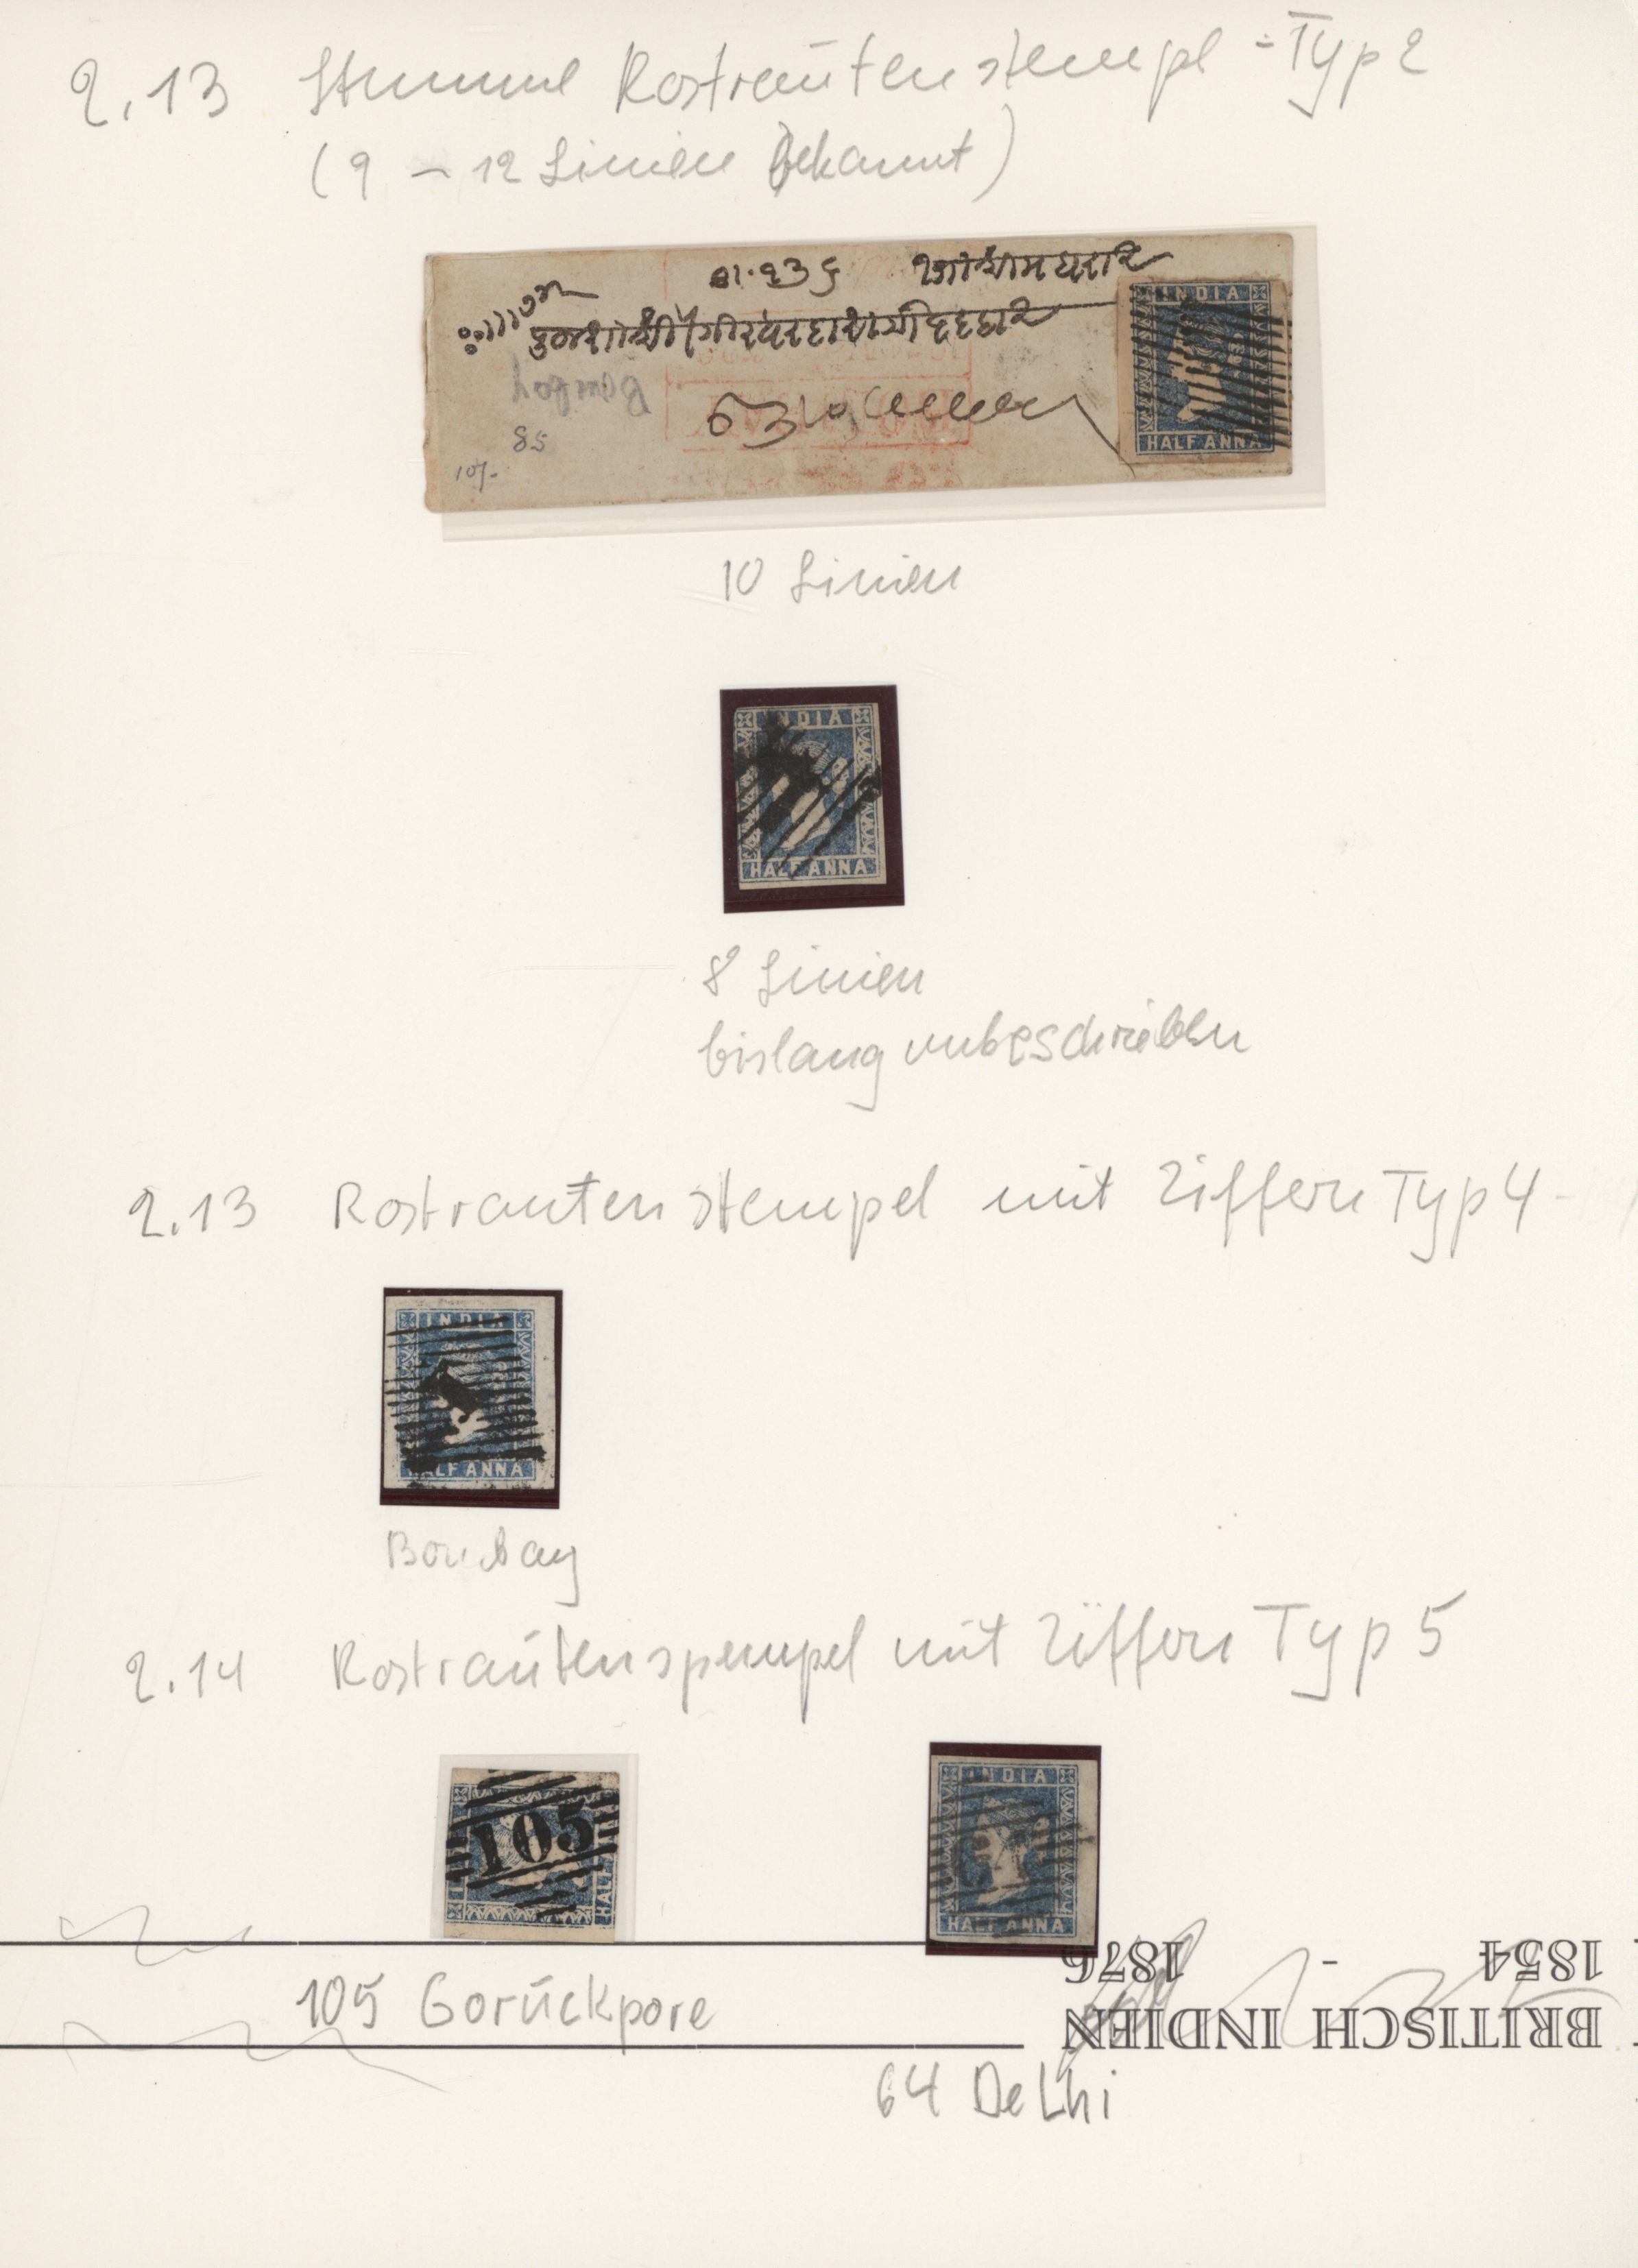 2.13 Stumme Rostrautenstempel = Typ 2
(9 – 12 Linien bekannt)
Bombay
85
10/-
INDIA
HALF ANNA
10 Linien
INDIA
HALF ANNA
8 Linien
bislang unbeschrieben
2.13 Rostrautenstempel mit Ziffern Typ 4
INDIA
HALF ANNA
1
Bombay
2.14 Rostrautenspempel mit Ziffern Typ 5
105
HALF
INDIA
HALF ANNA
105 Gorückpore
64 Delhi
BRITISCH INDIEN
1854 - 1876